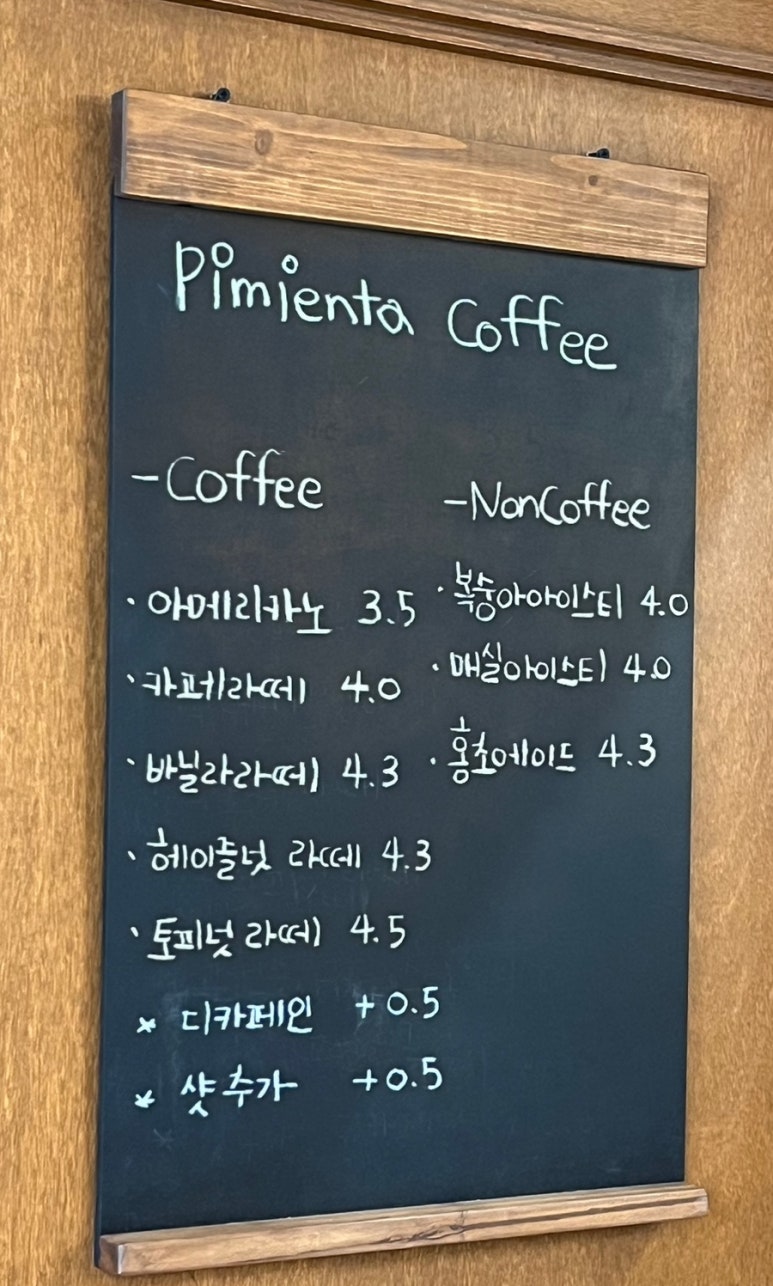 Pimienta Coffee
-Coffee
· 아메리카노 3.5
· 카페라떼 4.0
· 바닐라라떼 4.3
· 헤이즐넛 라떼 4.3
· 토피넛 라떼 4.5
* 디카페인 +0.5
* 샷 추가 +0.5
-NonCoffee
· 복숭아아이스티 4.0
· 매실아이스티 4.0
· 홍초에이드 4.3